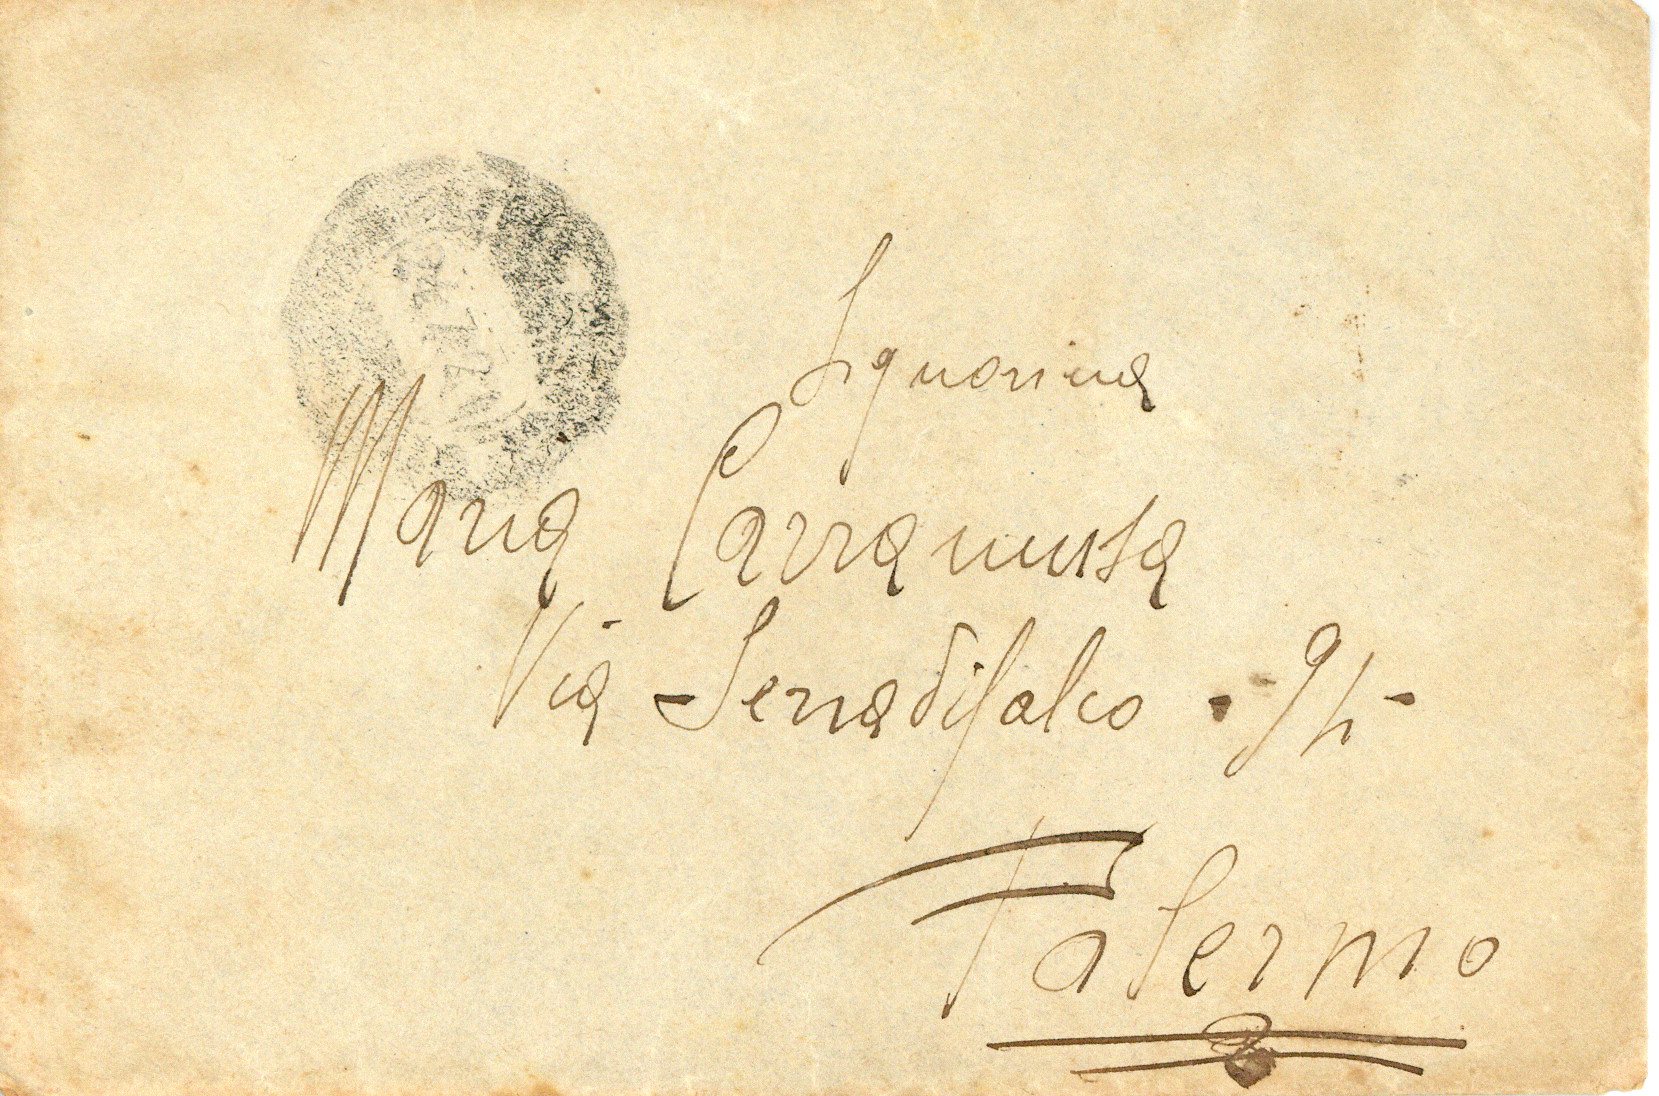 Signorina
Maria Carramusa
Via - Serradifalco · 94 -
Palermo